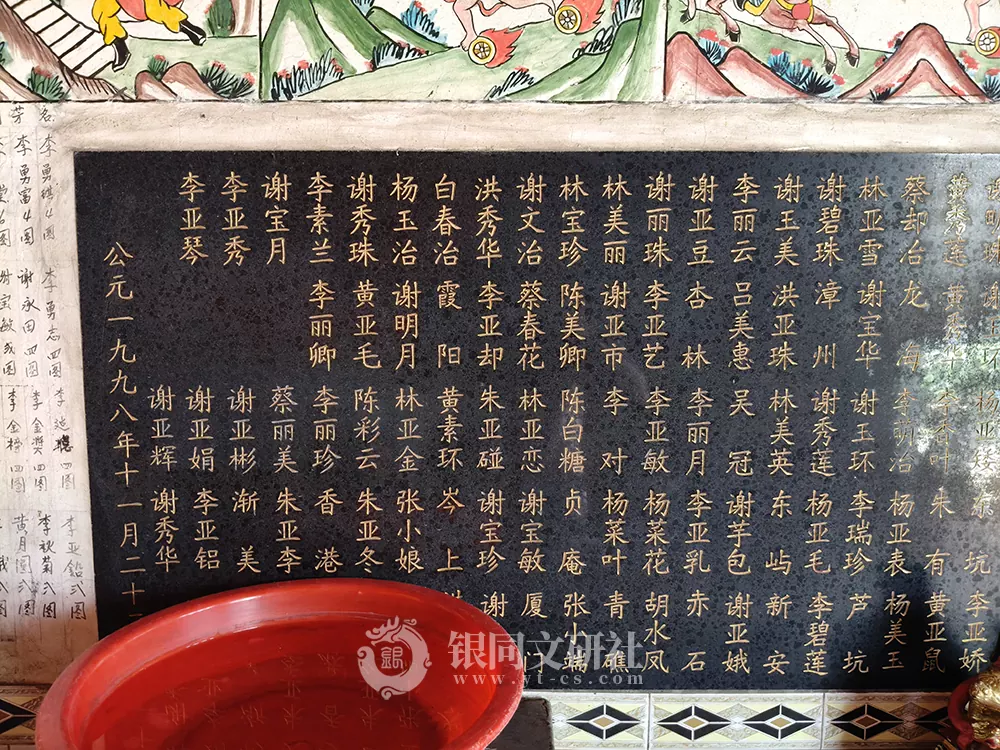 杨亚矮 坑 李亚娇
黄秀莲 黄秀华 李杏叶 朱有 黄亚鼠
蔡却治 龙海 李明治 杨亚表 杨美玉
林亚雪 谢宝华 谢玉环 李瑞珍 芦坑
谢碧珠 漳州 谢秀莲 杨亚毛 李碧莲
谢王美 洪亚珠 林美英 东屿 新安
李丽云 吕美惠 吴冠 谢羊包 谢亚娥
谢亚豆 杏林 李丽月 李亚乳 赤石
谢丽珠 李亚艺 李亚敏 杨菜花 胡水凤
林美丽 谢亚市 李对 杨菜叶 青礁
林宝珍 陈美卿 陈白糖 贞庵 张小端
谢文治 蔡春花 林亚恋 谢宝敏 厦
洪秀华 李亚却 朱亚碰 谢宝珍 谢
白春治 霞阳 黄素环 岑上
杨玉治 谢明月 林亚金 张小娘
谢秀珠 黄亚毛 陈彩云 朱亚冬
李素兰 李丽卿 李丽珍 香港
谢宝月 蔡丽美 朱亚李
李亚秀 谢亚彬 渐美
李亚琴 谢亚娟 李亚铝
谢亚辉 谢秀华
公元一九九八年十一月二十
李亚铅 弍图
名 李勇祺 4图 李勇志 四图 四图 李秋菊 弍图
芳 李勇富 4图 谢永田 四图 李金奖 四图 黄月圆 弍图
宝敏 弍图 李金榜 四图
银同文研社
www.yt-cs.com